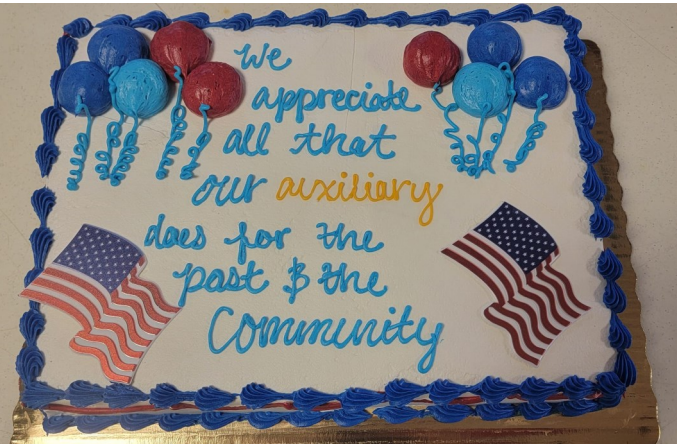 We
appreciate
all that
our auxiliary
does for the
past & the
Community